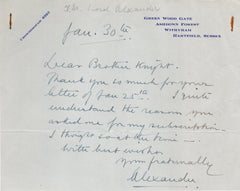 The Lord Alexander
Crowborough
Green Wood Gate
Ashdown Forest
Withyham
Hartfield, Sussex
Jan. 30th
Dear Brother Knight.
Thank you so much for your
letter of Jan 25th. I quite
understand the reason you
asked me for my subscription
I thought so at the time.
With best wishes
Yours fraternally
Alexander